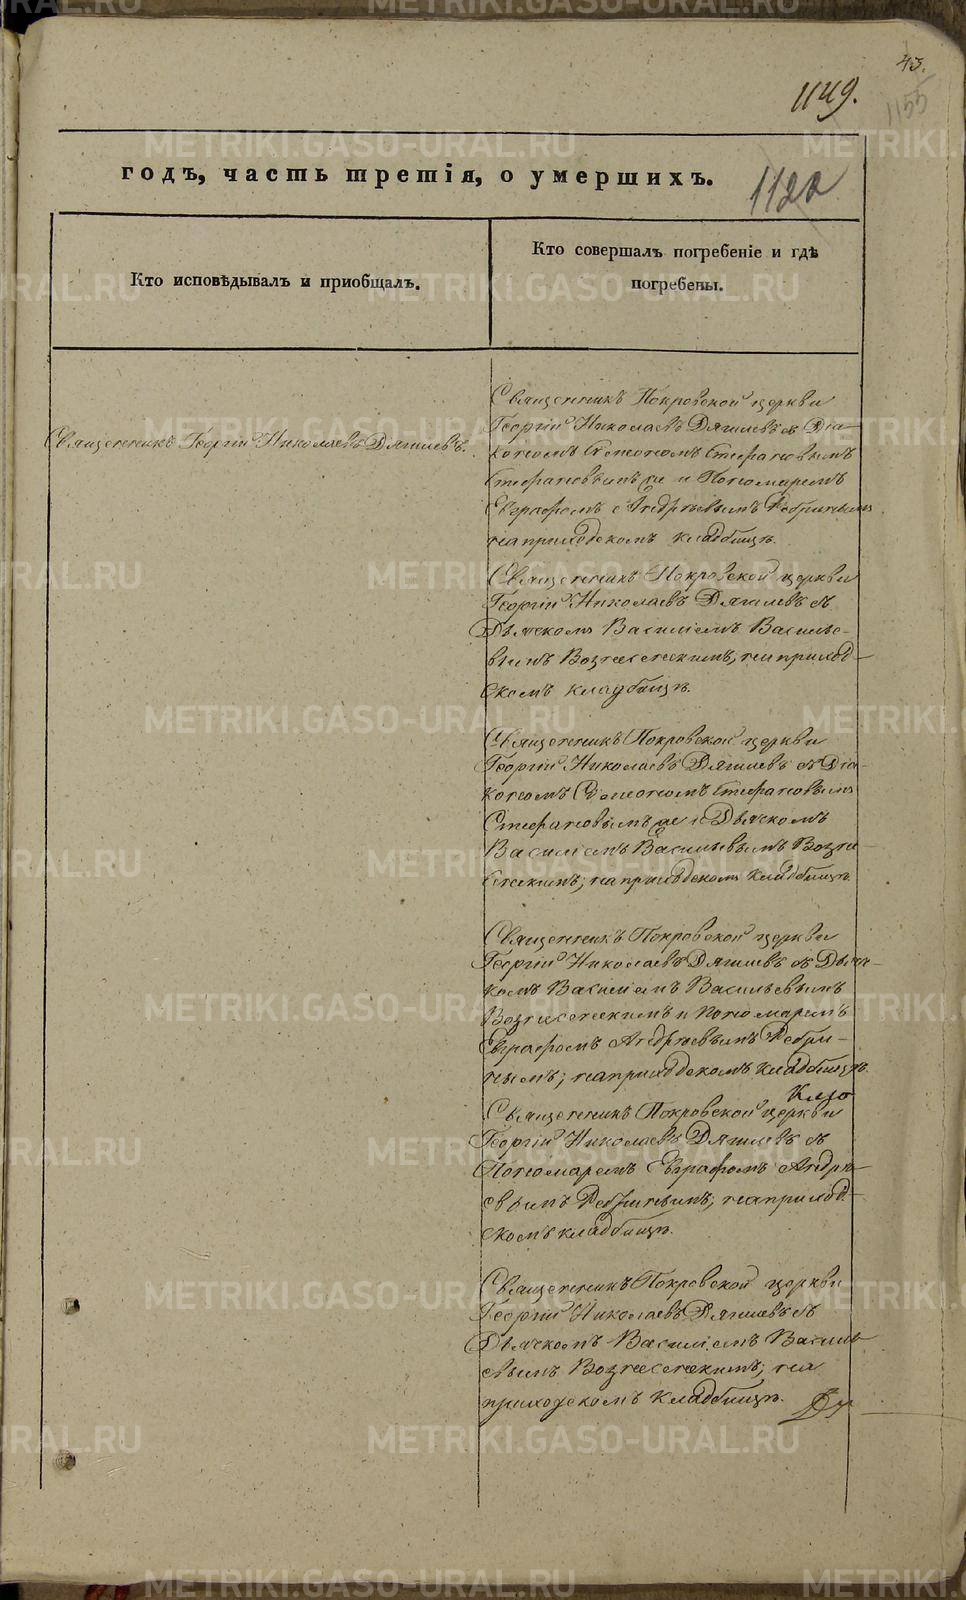 43.
1149.
1155
годъ, часть третія, о умершихъ.
1122
Кто исповѣдывалъ и приобщалъ.
Кто совершалъ погребеніе и гдѣ
погребены.
Священникъ Георгій Николаевъ Дягилевъ.
Священникъ Покровской церкви
Георгій Николаевъ Дягилевъ съ Діа-
кономъ Симеономъ Стефановымъ
Стефановымъ же и Пономаремъ
Евграфомъ Андреевымъ
на приходскомъ кладбищѣ.
Священникъ Покровской церкви
Георгій Николаевъ Дягилевъ съ
Дьячкомъ Василіемъ Василье-
вымъ Вознесенскимъ, на приход-
скомъ кладбищѣ.
Священникъ Покровской церкви
Георгій Николаевъ Дягилевъ съ Діа-
кономъ Симеономъ Стефановымъ
Стефановымъ же и Дьячкомъ
Василіемъ Васильевымъ Возне-
сенскимъ; на приходскомъ кладбищѣ.
Священникъ Покровской церкви
Георгій Николаевъ Дягилевъ съ Дьяч-
комъ Василіемъ Васильевымъ
Вознесенскимъ и Пономаремъ
Евграфомъ Андреевымъ
на приходскомъ кладбищѣ.
Священникъ Покровской церкви
Георгій Николаевъ Дягилевъ съ
Пономаремъ Евграфомъ Андре-
евымъ на приход-
скомъ кладбищѣ.
Священникъ Покровской церкви
Георгій Николаевъ Дягилевъ съ
Дьячкомъ Василіемъ Василь-
евымъ Вознесенскимъ; на
приходскомъ кладбищѣ.
METRIKI.GASO-URAL.RU